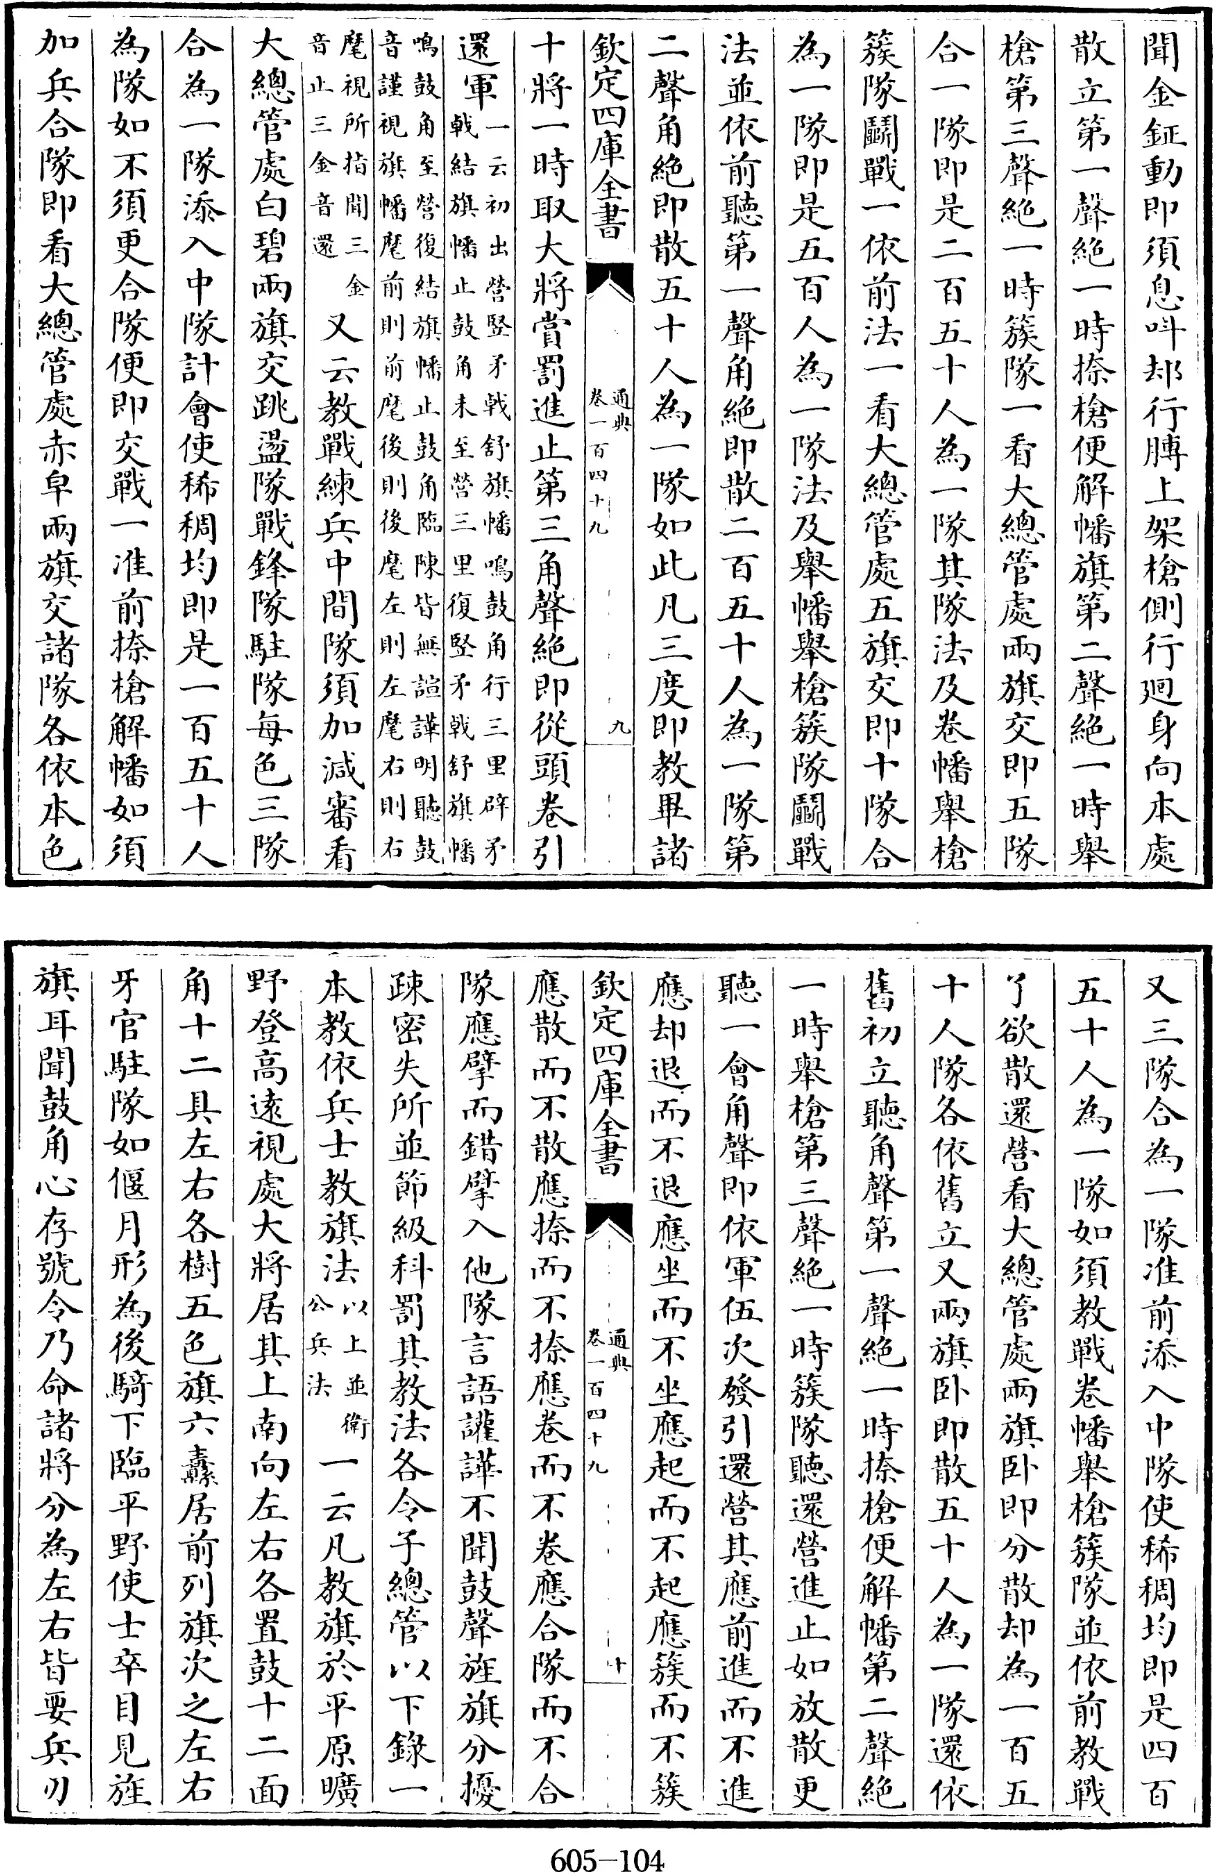 聞金鉦動即須息叫却行膊上架槍側行廻身向本處
散立第一聲絶一時捺槍便解幡旗第二聲絶一時舉
槍第三聲絶一時簇隊一看大總管處兩旗交即五隊
合一隊即是二百五十人為一隊其隊法及卷幡舉槍
簇隊鬭戰一依前法一看大總管處五旗交即十隊合
為一隊即是五百人為一隊法及舉幡舉槍簇隊鬭戰
法並依前聽第一聲角絶即散二百五十人為一隊第
二聲角絶即散五十人為一隊如此凡三度即教畢諸
欽定四庫全書
通典
卷一百四十九
九
十將一時取大將賞罰進止第三角聲絶即從頭卷引
還軍
一云初出營竪矛戟舒旗幡鳴鼓角行三里辟矛
戟結旗幡止鼓角未至營三里復竪矛戟舒旗幡
鳴鼓角至營復結旗幡止鼓角臨陳皆無諠譁明聽鼓
音謹視旗幡麾前則前麾後則後麾左則左麾右則右
麾視所指聞三金
音止三金音還
又云教戰練兵中間隊須加減審看
大總管處白碧兩旗交跳盪隊戰鋒隊駐隊每色三隊
合為一隊添入中隊計會使稀稠均即是一百五十人
為隊如不須更合隊便即交戰一准前捺槍解幡如須
加兵合隊即看大總管處赤皁兩旗交諸隊各依本色
又三隊合為一隊准前添入中隊使稀稠均即是四百
五十人為一隊如須教戰卷幡舉槍簇隊並依前教戰
了欲散還營看大總管處兩旗卧即分散却為一百五
十人隊各依舊立又兩旗卧即散五十人為一隊還依
舊初立聽角聲第一聲絶一時捺槍便解幡第二聲絶
一時舉槍第三聲絶一時簇隊聽還營進止如放散更
聽一會角聲即依軍伍次發引還營其應前進而不進
應却退而不退應坐而不坐應起而不起應簇而不簇
欽定四庫全書
通典
卷一百四十九
十
應散而不散應捺而不捺應卷而不卷應合隊而不合
隊應擘而錯擘入他隊言語讙譁不聞鼓聲旌旗分擾
疎密失所並節級科罰其教法各令子總管以下錄一
本教依兵士教旗法
以上並衛
公兵法
一云凡教旗於平原曠
野登高遠視處大將居其上南向左右各置鼓十二面
角十二具左右各樹五色旗六纛居前列旗次之左右
牙官駐隊如偃月形為後騎下臨平野使士卒目見旌
旗耳聞鼓角心存號令乃命諸將分為左右皆要兵刃
605-104